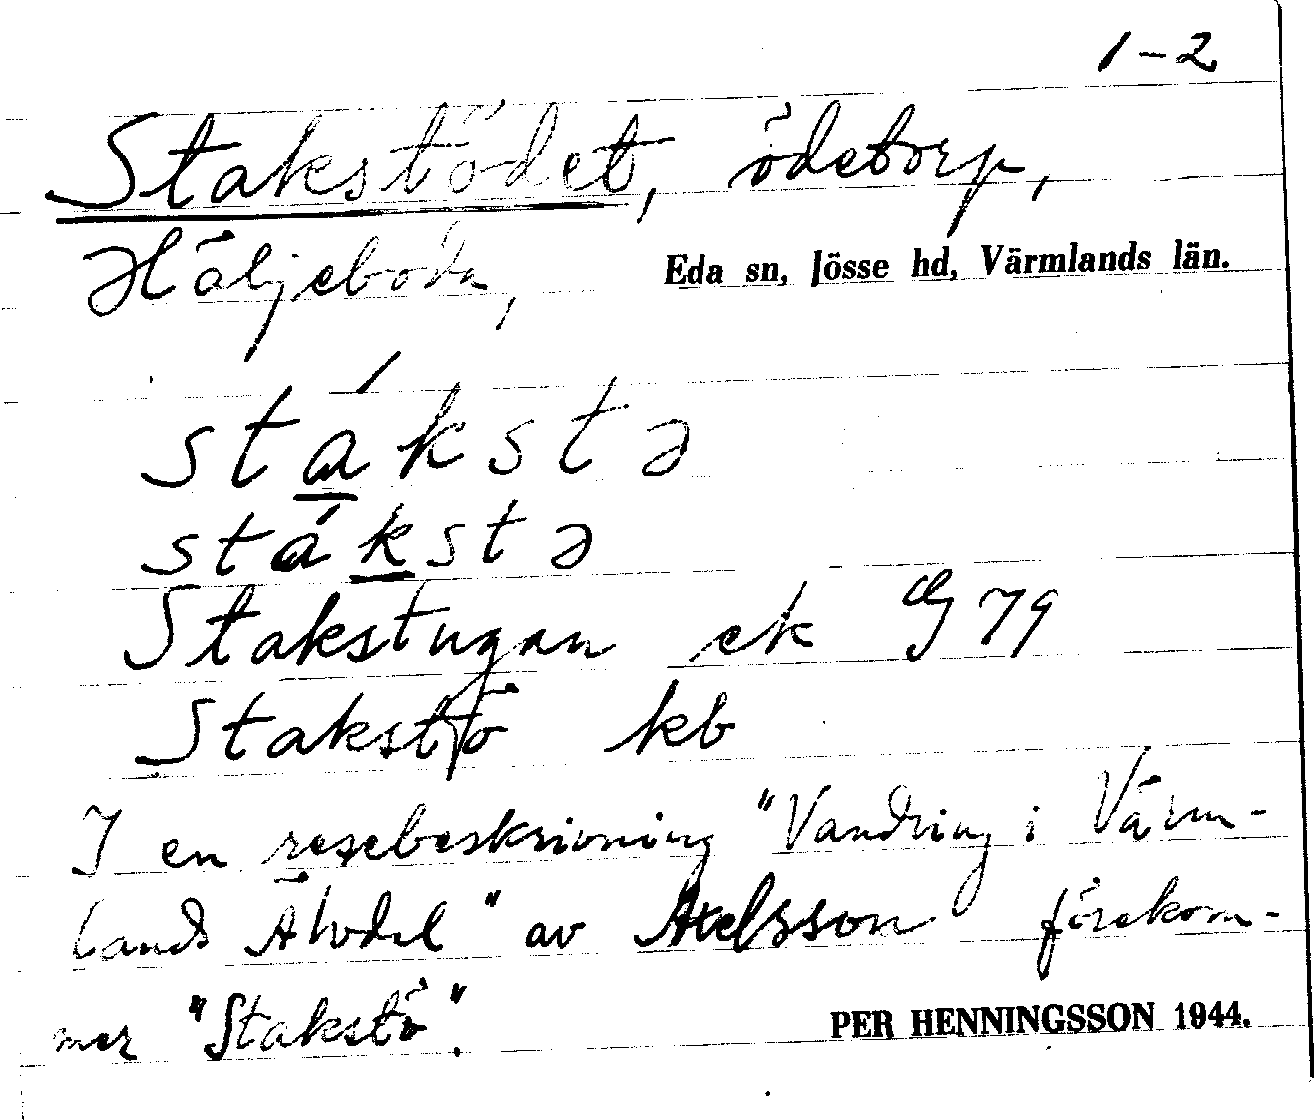 1-2
Stakstödet, ödetorp,
Häljeboda, Eda sn, Jösse hd, Värmlands län.
stákstə
stákstə
Stakstugan ek G 79
Stakstö kb
I en resebeskrivning "Vandring i Värm-
lands Älvdal" av Axelsson förekom-
mer "Stakstö".
PER HENNINGSSON 1944.